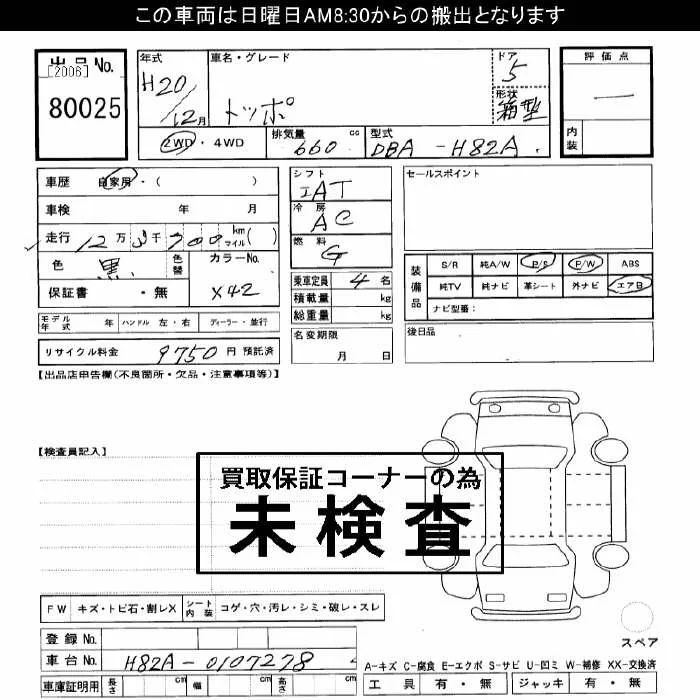 この車両は日曜日AM8:30からの搬出となります
出品No.
[2006]
80025
年式
H20/12月
車名・グレード
トッポ
ドア
5
形状
箱型
評価点
一
内装
2WD・4WD
排気量 660 cc
型式 DBA-H82A
車歴 自家用・( )
車検 年 月
走行 12万3千700 km マイル( )
色 黒 色替
カラーNo. X42
保証書 ・無
シフト
IAT
冷房
AC
燃料
G
乗車定員 4名
積載量 kg
総重量 kg
名変期限
月 日
セールスポイント
装備品
S/R 純A/W P/S P/W ABS
純TV 純ナビ 革シート 外ナビ エアB
ナビ型番:
後日品
モデル年式 年 ハンドル 左・右 ディーラー・並行
リサイクル料金 9750円 預託済
【出品店申告欄(不良箇所・欠品・注意事項等)】
【検査員記入】
買取保証コーナーの為
未検査
FW キズ・トビ石・割レX シート内装 コゲ・穴・汚レ・シミ・破レ・スレ
登録No.
車台No. H82A-0107278
車庫証明用 長さ cm 幅 cm 高さ cm
スペア
A-キズ C-腐食 E-エクボ S-サビ U-凹ミ W-補修 XX-交換済
工具 有・無 ジャッキ 有・無